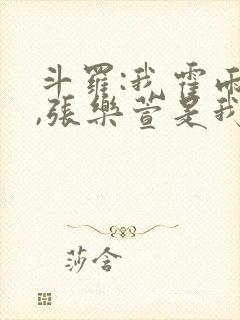 斗羅:我霍雨
,張樂萱是我
莎含